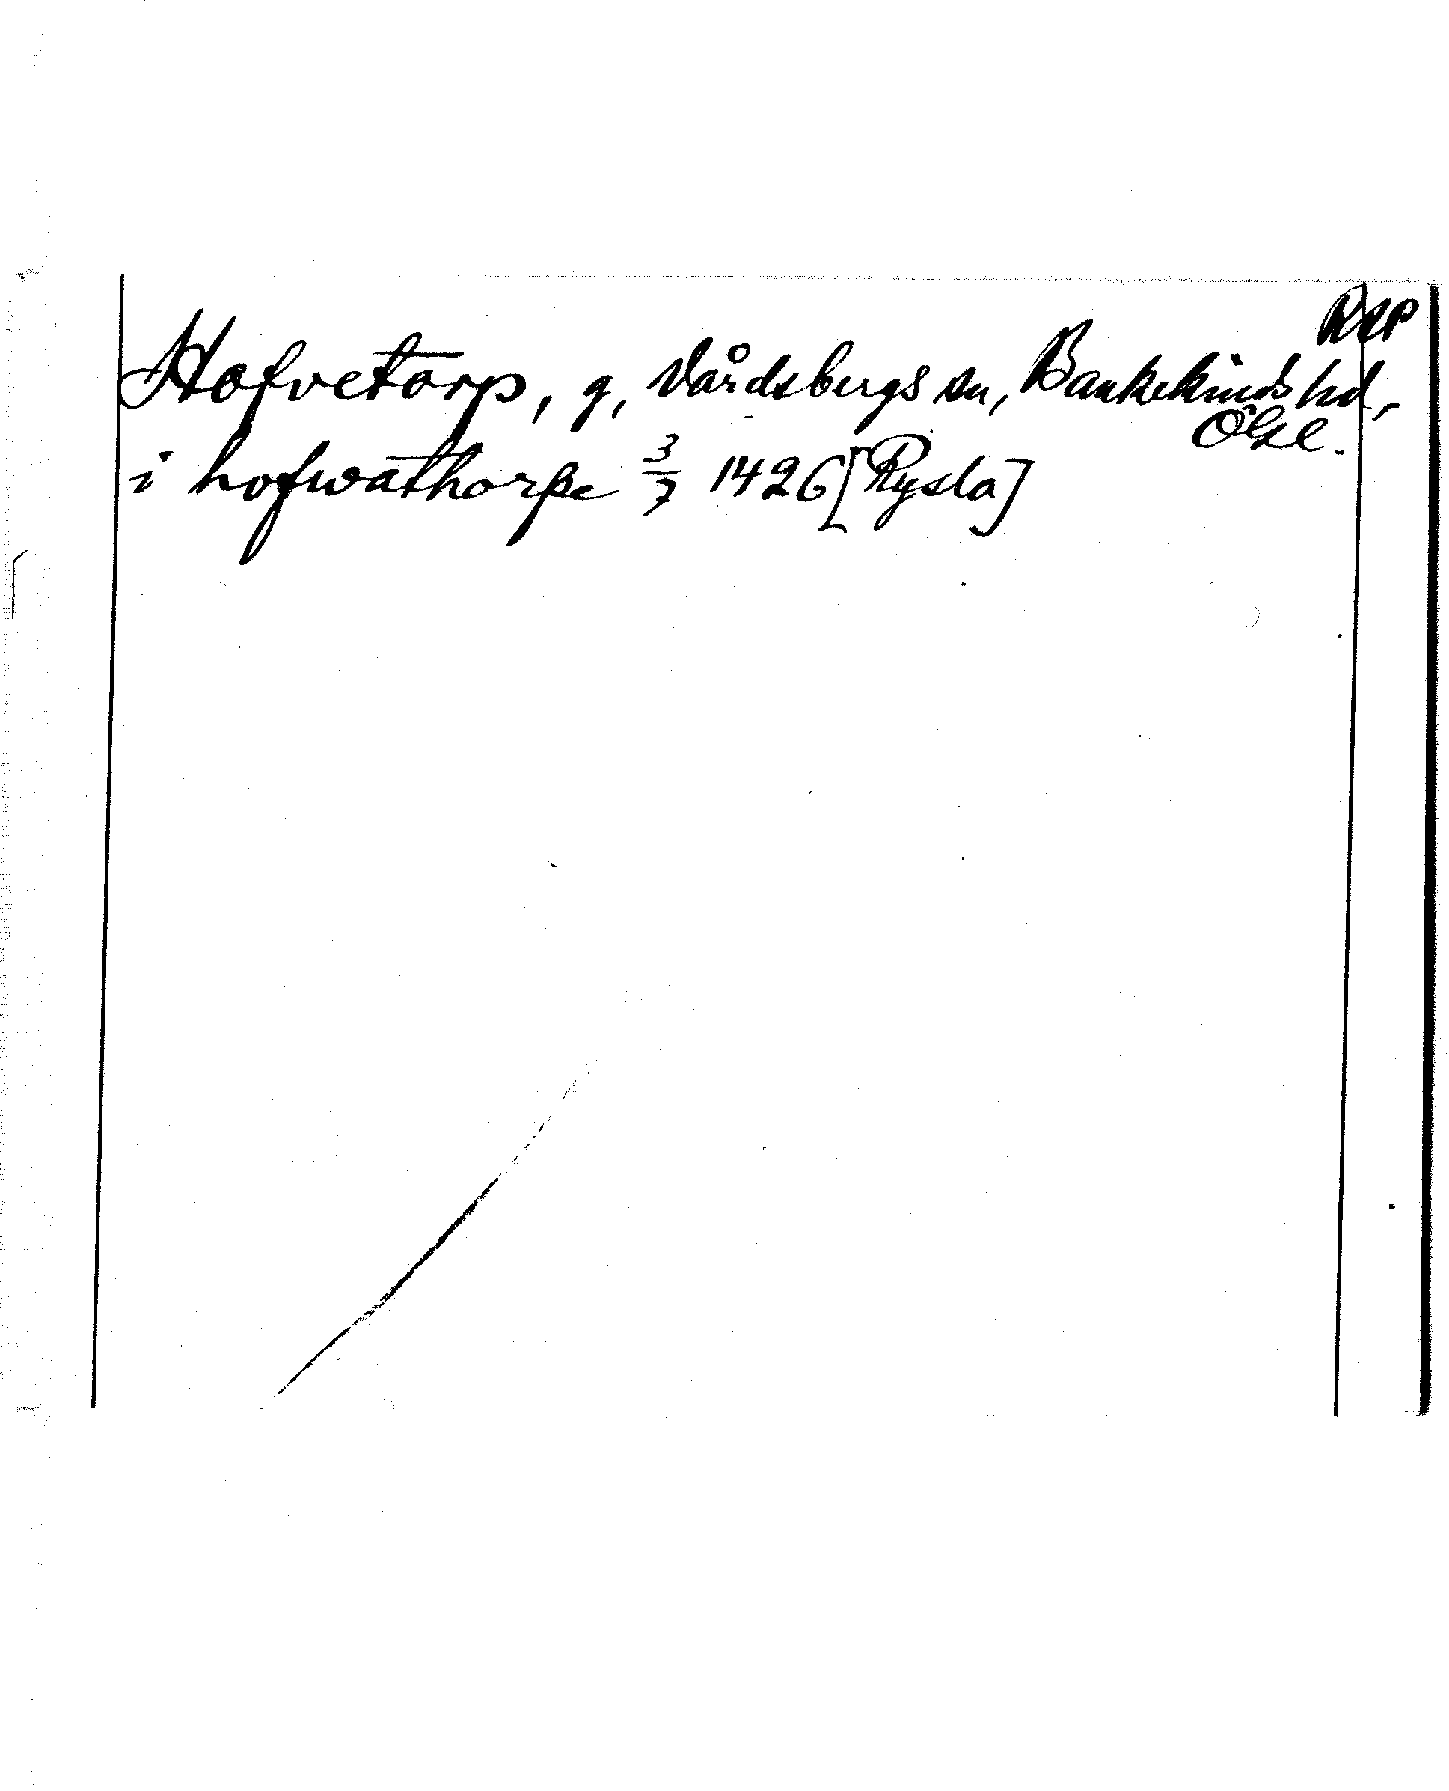 RAP
Hofvetorp, g, Vårdsbergs sn, Bankekinds hd,
ÖGL.
i hofwathorpe 3/7 1426 [Rysla]